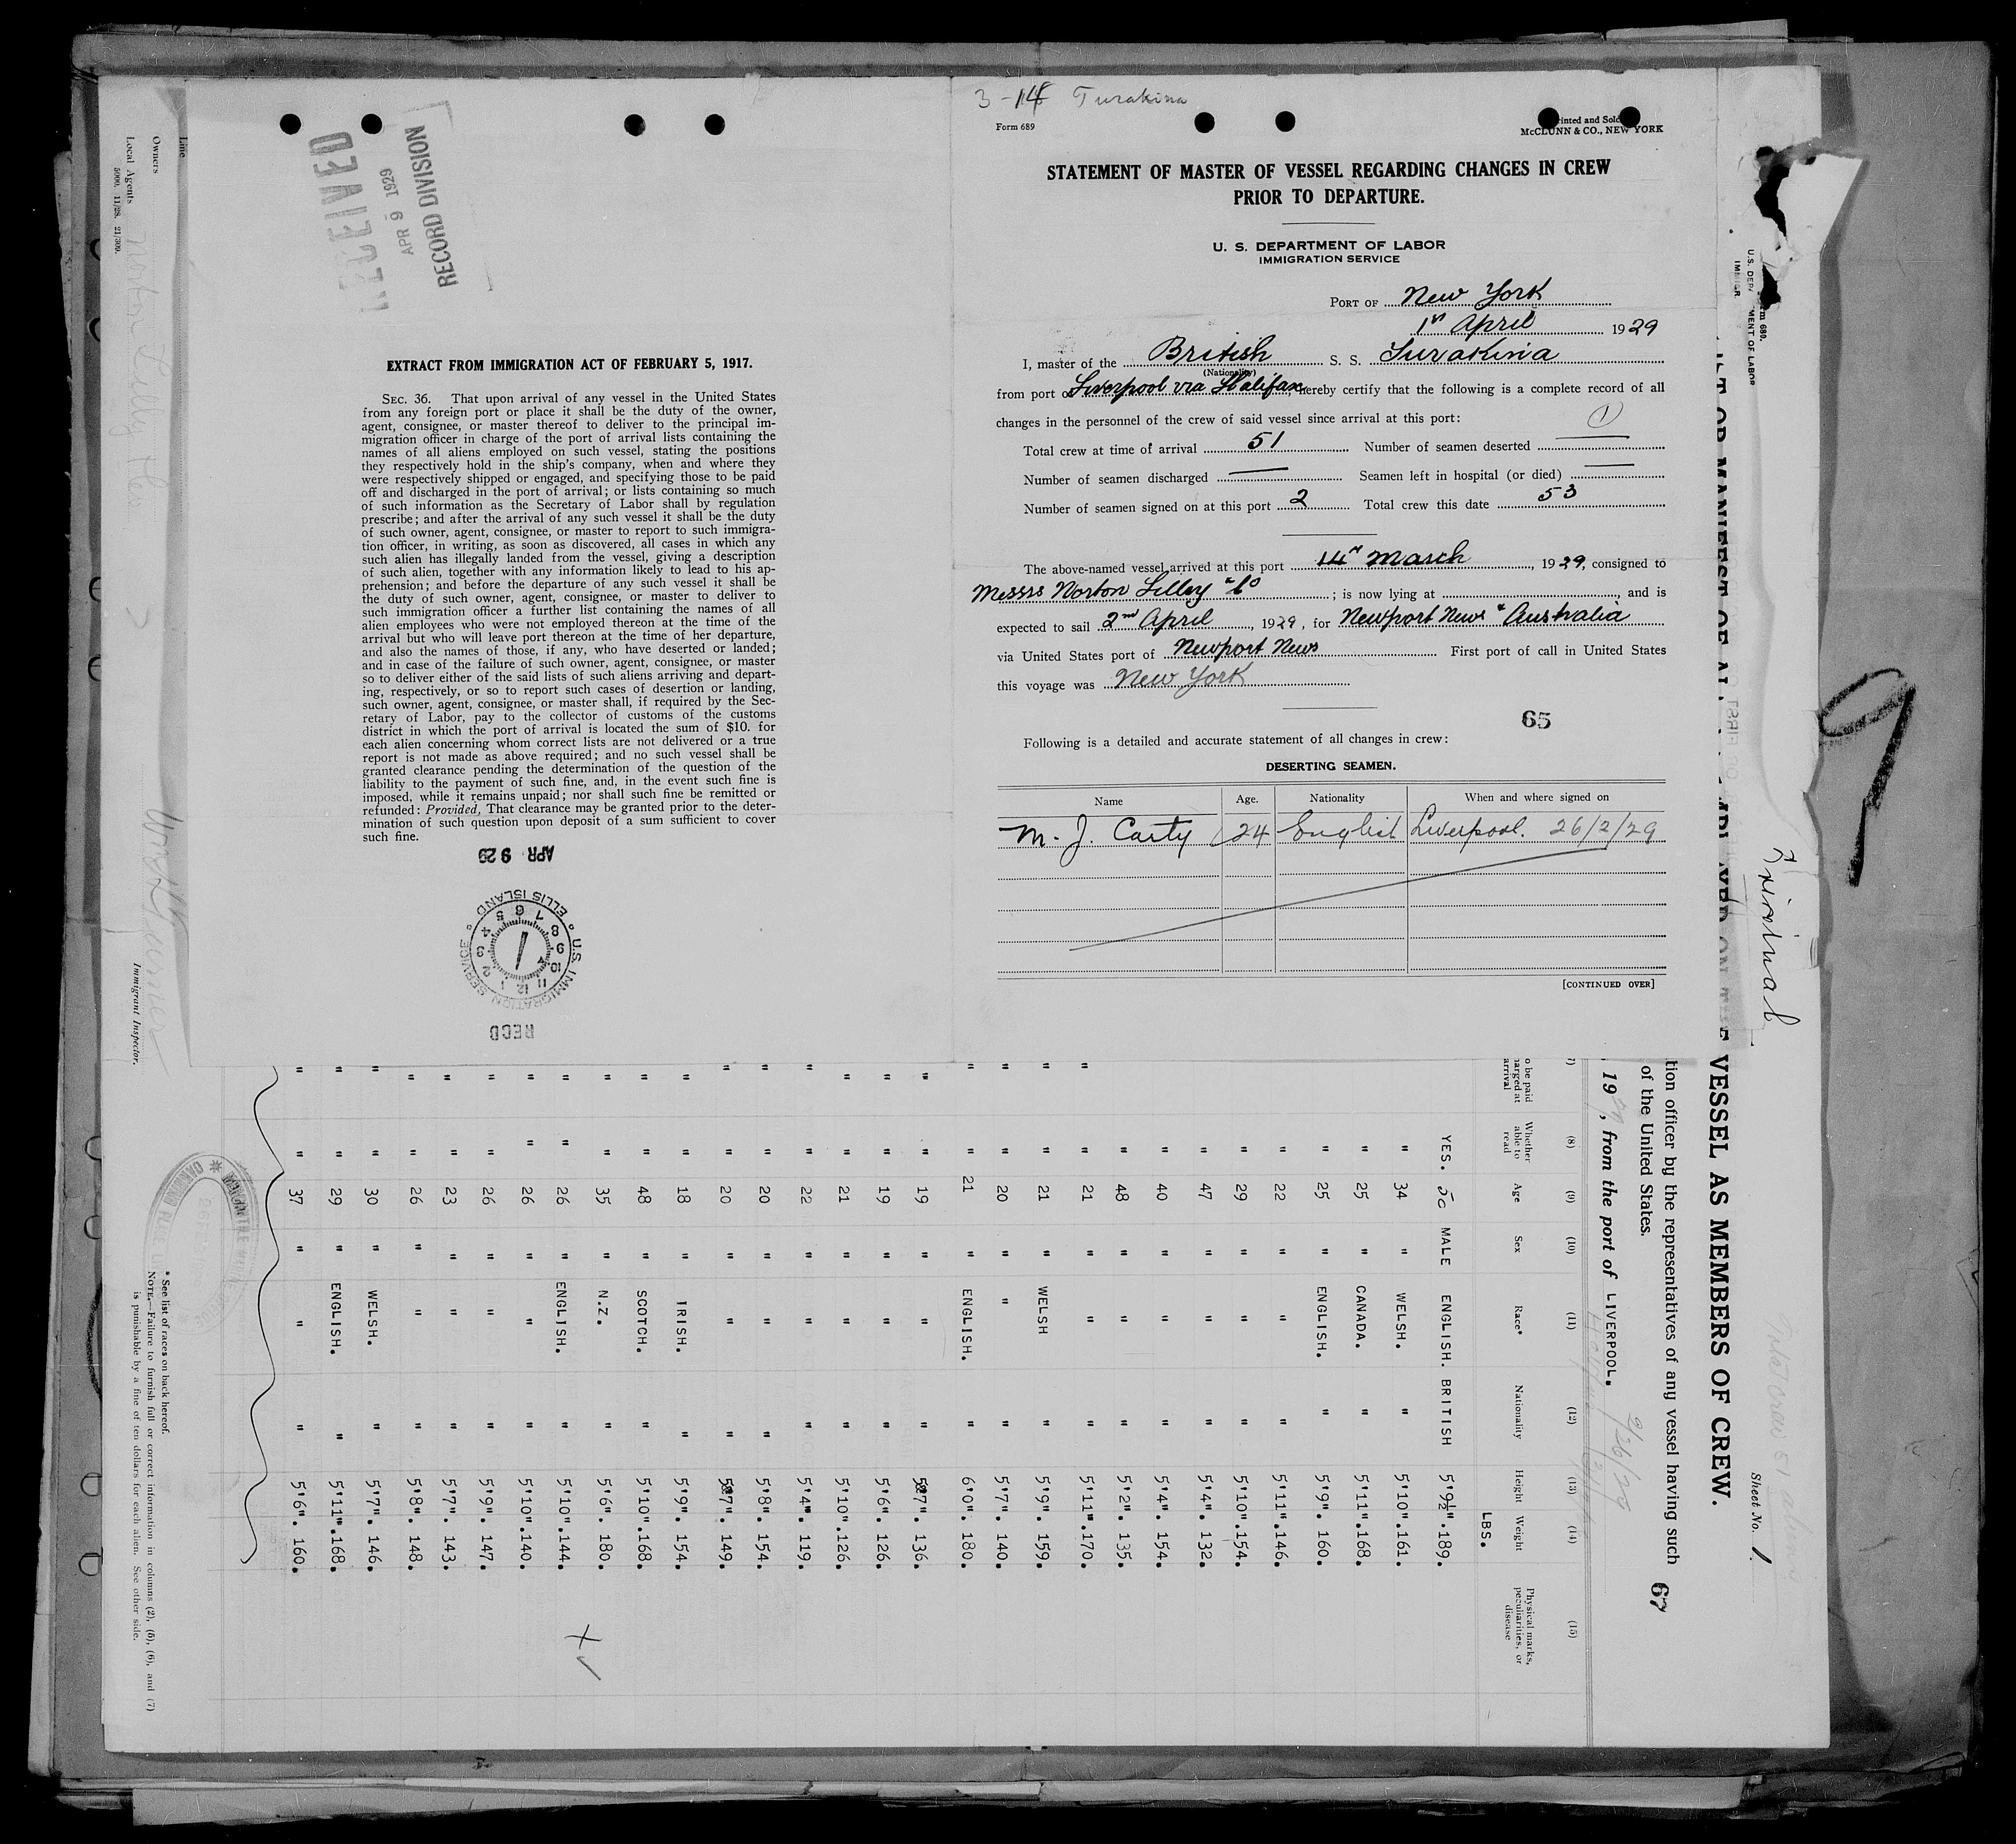 3-14 Turakina
Form 689
Printed and Sold
McCLUNN & CO., NEW YORK
STATEMENT OF MASTER OF VESSEL REGARDING CHANGES IN CREW
PRIOR TO DEPARTURE.
U. S. DEPARTMENT OF LABOR
IMMIGRATION SERVICE
PORT OF New York
1st April 1929
I, master of the British S. S. Turakina
(Nationality)
from port of Liverpool via Halifax, hereby certify that the following is a complete record of all
changes in the personnel of the crew of said vessel since arrival at this port:
1
Total crew at time of arrival 51 Number of seamen deserted
Number of seamen discharged Seamen left in hospital (or died)
Number of seamen signed on at this port 2 Total crew this date 53
The above-named vessel arrived at this port 14th March, 1929, consigned to
Messrs Norton Lilley & Co; is now lying at , and is
expected to sail 2nd April, 1929, for Newport News & Australia
via United States port of Newport News First port of call in United States
this voyage was New York
65
Following is a detailed and accurate statement of all changes in crew:
DESERTING SEAMEN.
Name Age. Nationality When and where signed on
M. J. Carty 24 English Liverpool. 26/2/29
[CONTINUED OVER]
RECEIVED
APR 9 1929
RECORD DIVISION
EXTRACT FROM IMMIGRATION ACT OF FEBRUARY 5, 1917.
SEC. 36. That upon arrival of any vessel in the United States
from any foreign port or place it shall be the duty of the owner,
agent, consignee, or master thereof to deliver to the principal im-
migration officer in charge of the port of arrival lists containing the
names of all aliens employed on such vessel, stating the positions
they respectively hold in the ship's company, when and where they
were respectively shipped or engaged, and specifying those to be paid
off and discharged in the port of arrival; or lists containing so much
of such information as the Secretary of Labor shall by regulation
prescribe; and after the arrival of any such vessel it shall be the duty
of such owner, agent, consignee, or master to report to such immigra-
tion officer, in writing, as soon as discovered, all cases in which any
such alien has illegally landed from the vessel, giving a description
of such alien, together with any information likely to lead to his ap-
prehension; and before the departure of any such vessel it shall be
the duty of such owner, agent, consignee, or master to deliver to
such immigration officer a further list containing the names of all
alien employees who were not employed thereon at the time of the
arrival but who will leave port thereon at the time of her departure,
and also the names of those, if any, who have deserted or landed;
and in case of the failure of such owner, agent, consignee, or master
so to deliver either of the said lists of such aliens arriving and depart-
ing, respectively, or so to report such cases of desertion or landing,
such owner, agent, consignee, or master shall, if required by the Sec-
retary of Labor, pay to the collector of customs of the customs
district in which the port of arrival is located the sum of $10. for
each alien concerning whom correct lists are not delivered or a true
report is not made as above required; and no such vessel shall be
granted clearance pending the determination of the question of the
liability to the payment of such fine, and, in the event such fine is
imposed, while it remains unpaid; nor shall such fine be remitted or
refunded: Provided, That clearance may be granted prior to the deter-
mination of such question upon deposit of a sum sufficient to cover
such fine.
APR 9 29
U.S. IMMIGRATION SERVICE ELLIS ISLAND
1 2 3 4 5 6 7 8 9 10 11 12
RECD
9
Sheet No. 1
VESSEL AS MEMBERS OF CREW.
tion officer by the representatives of any vessel having such
67
of the United States.
19 , from the port of LIVERPOOL.
(8) (9) (10) (11) (12) (13) (14) (15)
Whether able to read Age Sex Race* Nationality Height Weight Physical marks, peculiarities, or disease
LBS.
YES. 50 MALE ENGLISH. BRITISH 5'9½". 189.
" 34 " WELSH. " 5'10". 161.
" 25 " CANADA. " 5'11". 168.
" 25 " ENGLISH. " 5'9". 160.
" 22 " " " 5'11". 146.
" 29 " " " 5'10". 154.
" 47 " " " 5'4". 132.
" 40 " " " 5'4". 154.
" 48 " " " 5'2". 135.
" 21 " " " 5'11". 170.
" 21 " WELSH " 5'9". 159.
" 20 " " " 5'7". 140.
" 21 " ENGLISH. " 6'0". 180.
" 19 " " " 5'7". 136.
" 19 " " " 5'6". 126.
" 21 " " " 5'10". 126.
" 22 " " " 5'4". 119.
" 20 " " " 5'8". 154.
" 20 " " " 5'7". 149.
" 18 " IRISH. " 5'9". 154.
" 48 " SCOTCH. " 5'10". 168.
" 35 " N.Z. " 5'6". 180.
" 26 " ENGLISH. " 5'10". 144.
" 26 " " " 5'10". 140.
" 26 " " " 5'9". 147.
" 23 " " " 5'7". 143.
" 26 " " " 5'8". 148.
" 30 " WELSH. " 5'7". 146.
" 29 " ENGLISH. " 5'11". 168.
" 37 " " " 5'6". 160.
* See list of races on back hereof.
NOTE.—Failure to furnish full or correct information in columns (2), (5), (6), and (7)
is punishable by a fine of ten dollars for each alien. See other side.
Immigrant Inspector.
Line
Owners
Local Agents Norton Lilly
5000. 11/28. 21/309.